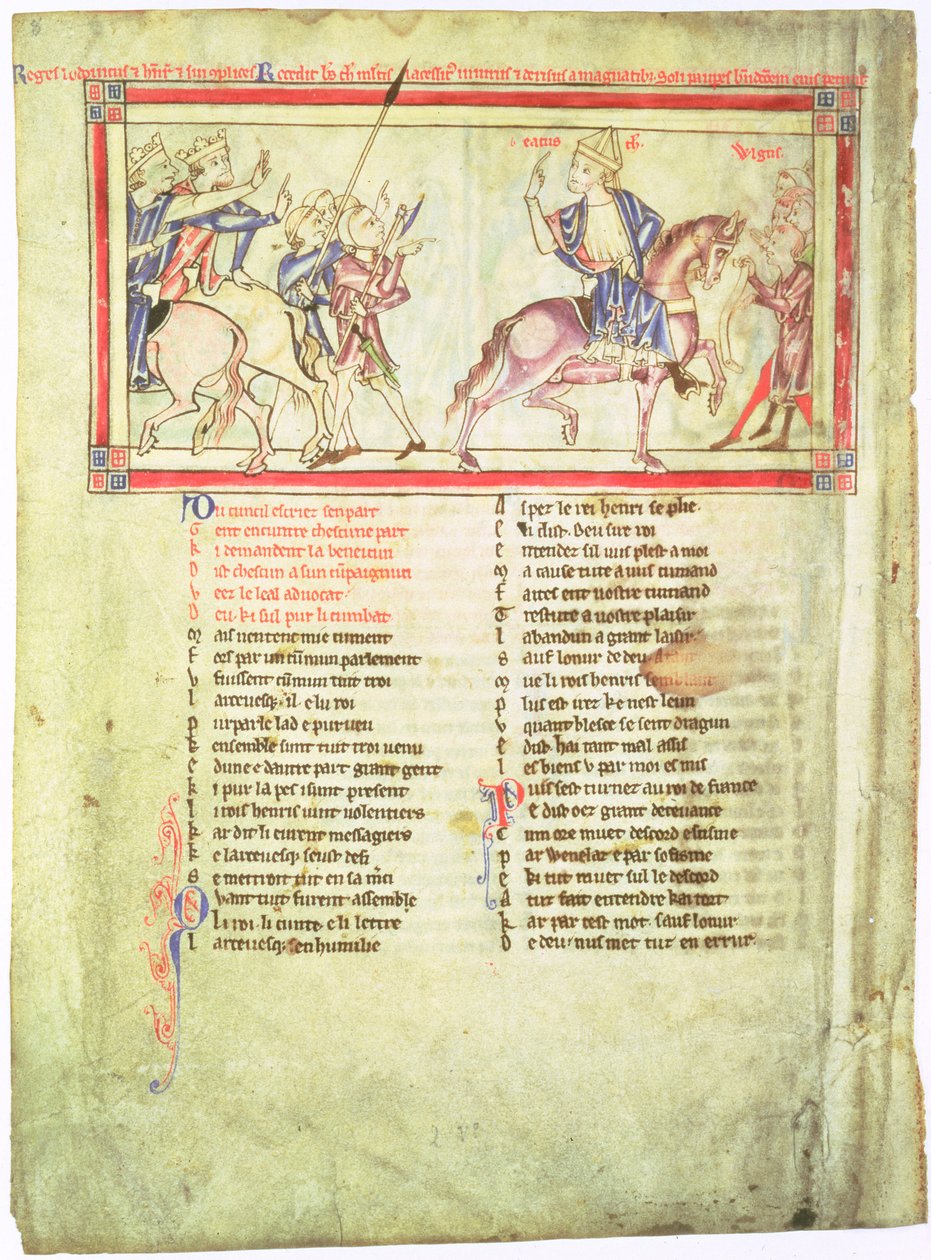 Reges lodovicus & henr' & sui complices. Recedit b's th' mestis lacessit' iniuriis & derisus a magnatib;. Soli paup'es b'n'dic'c'o'em eius petunt
beatus th.
Wlgus.
Du cuncil escriez sen part
Gent encuntre chescune part
Ki demandent la beneicun
Dist chescun a sun cu'paignun
Veez le leal advocat
Deu. ki sul pur li cumbat
Mais ne vent mie cument
Fors par un cu'mun parlement
Fuissent cu'mun tuit troi
Larcevesq;. il e li roi
Purparle lad e purveu
Kensemble sunt tuit troi venu
E dune e dautre part grant gent
Ki pur la pes i sunt present
Li rois henris vint volentiers
Kar dit li eurent messagiers
Ke larcevesq; senz defi
Se mettroit tut en sa m'ci
Quant tuit furent assemble
Li roi. li cunte. e li lettre
Larcevesq; sen humilie
As pez le rei henri se plie.
E li dist. Deu sire roi
Entendez sil vus plest a moi
Ma cause tute a vus cumand
Faites ent vostre cumand
Trestute a vostre plaisir
Labandun a grant laisir.
Sauf lonur de deu. Atant
Mue li rois henris semblant
Plus est irez ke nest leun
V quant blesce se sent dragun
E dist. hai tant mal assis
Les biens v par moi es mis
Puis sest turnez au roi de france
E dist oez grant decevance
Cum ore muet descord e scisme
Par wenelat e par sofisme
E ki tut muet sul le descord
A tut fait entendre kai tort
Kar par cest mot. sauf lonur
De deu. nus met tut en errur.
2 v°